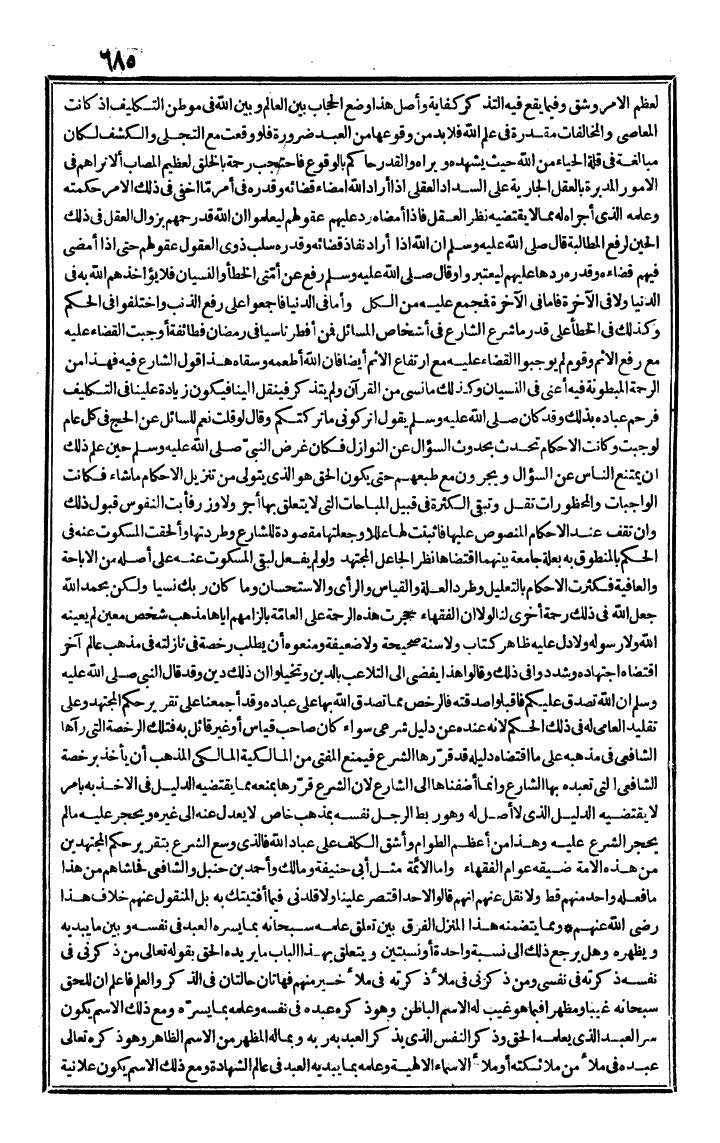 ٦٨٥
لعظم الامر وشق وفيما يقع فيه التذكر كفاية وأصل هذا وضع الحجاب بين العالم وبين الله فى موطن التكليف اذ كانت
المعاصى والمخالفات مقدرة فى علم الله فلا بد من وقوعها من العبد ضرورة فلو وقعت مع التجلى والكشف لكان
مبالغة فى قلة الحياء من الله حيث يشهده ويراه والقدر حاكم بالوقوع فاحتجب رحمة بالخلق لعظيم المصاب ألا تراهم فى
الامور المدبرة بالعقل الجارية على السداد العقلى اذا أراد الله امضاء قضائه وقدره فى أمر ما اخفى فى ذلك الامر حكمته
وعلمه الذى أجراه له مما لا يقتضيه نظر العقل فاذا أمضاه رد عليهم عقولهم ليعلموا ان الله قد رحمهم بزوال العقل فى ذلك
الحين لرفع المطالبة قال صلى الله عليه وسلم ان الله اذا أراد نفاذ قضائه وقدره سلب ذوى العقول عقولهم حتى اذا أمضى
فيهم قضاءه وقدره ردها عليهم ليعتبروا وقال صلى الله عليه وسلم رفع عن أمتى الخطأ والنسيان فلا يؤاخذهم الله به فى
الدنيا ولا فى الآخرة فاما فى الآخرة فمجمع عليه من الكل وأما فى الدنيا فاجمعوا على رفع الذنب واختلفوا فى الحكم
وكذلك فى الخطأ على قدر ما شرع الشارع فى أشخاص المسائل فمن أفطر ناسيا فى رمضان فطائفة أوجبت القضاء عليه
مع رفع الاثم وقوم لم يوجبوا القضاء عليه مع ارتفاع الاثم أيضا فان الله أطعمه وسقاه هذا قول الشارع فيه فهذا من
الرحمة المبطونة فيه أعنى فى النسيان وكذلك ما نسى من القرآن ولم يتذكر فينقل الينا فيكون زيادة علينا فى التكليف
فرحم عباده بذلك وقد كان صلى الله عليه وسلم يقول اتركونى ما تركتكم وقال لو قلت نعم للسائل عن الحج فى كل عام
لوجبت وكانت الاحكام تحدث بحدوث السؤال عن النوازل فكان غرض النبى صلى الله عليه وسلم حين علم ذلك
ان يمتنع الناس عن السؤال ويجرون مع طبعهم حتى يكون الحق هو الذى يتولى من تنزيل الاحكام ما شاء فكانت
الواجبات والمحظورات تقل وتبقى الكثرة فى قبيل المباحات التى لا يتعلق بها أجر ولا وزر فأبت النفوس قبول ذلك
وان تقف عند الاحكام المنصوص عليها فاثبتت لها عللا وجعلتها مقصودة للشارع وطردتها وألحقت المسكوت عنه فى
الحكم بالمنطوق به بعلة جامعة بينهما اقتضاها نظر الجاعل المجتهد ولو لم يفعل لبقى المسكوت عنه على أصله من الاباحة
والعافية فكثرت الاحكام بالتعليل وطرد العلة والقياس والرأى والاستحسان وما كان ربك نسيا ولكن بحمد الله
جعل الله فى ذلك رحمة أخرى لنا لولا ان الفقهاء حجرت هذه الرحمة على العامة بالزامهم اياها مذهب شخص معين لم يعينه
الله ولا رسوله ولا دل عليه ظاهر كتاب ولا سنة صحيحة ولا ضعيفة ومنعوه أن يطلب رخصة فى نازلته فى مذهب عالم آخر
اقتضاه اجتهاده وشددوا فى ذلك وقالوا هذا يفضى الى التلاعب بالدين وتخيلوا ان ذلك دين وقد قال النبى صلى الله عليه
وسلم ان الله تصدق عليكم فاقبلوا صدقته فالرخص مما تصدق الله بها على عباده وقد أجمعنا على تقرير حكم المجتهد وعلى
تقليد العامى له فى ذلك الحكم لانه عنده عن دليل شرعى سواء كان صاحب قياس أو غير قائل به فتلك الرخصة التى رآها
الشافعى فى مذهبه على ما اقتضاه دليله قد قررها الشرع فيمنع المفتى من المالكية المالكى المذهب أن يأخذ برخصة
الشافعى التى تعبده بها الشارع وانما أضفناها الى الشارع لان الشرع قررها بمنعه مما يقتضيه الدليل فى الاخذ به بامر
لا يقتضيه الدليل الذى لا أصل له وهو ربط الرجل نفسه بمذهب خاص لا يعدل عنه الى غيره ويحجر عليه ما لم
يحجر الشرع عليه وهذا من أعظم الطوام وأشق الكلف على عباد الله فالذى وسع الشرع بتقرير حكم المجتهدين
من هذه الامة ضيقه عوام الفقهاء واما الائمة مثل أبى حنيفة ومالك وأحمد بن حنبل والشافعى فحاشاهم من هذا
ما فعله واحد منهم قط ولا نقل عنهم انهم قالوا لاحد اقتصر علينا ولا قلدنى فيما أفتيتك به بل المنقول عنهم خلاف هذا
رضى الله عنهم * ومما يتضمنه هذا المنزل الفرق بين تعلق علمه سبحانه بما يسره العبد فى نفسه وبين ما يبديه
ويظهره وهل يرجع ذلك الى نسبة واحدة أو نسبتين ويتعلق بهذا الباب ما يريده الحق بقوله تعالى من ذكرنى فى
نفسه ذكرته فى نفسى ومن ذكرنى فى ملأ ذكرته فى ملأ خير منهم فهاتان حالتان فى الذكر والعلم فاعلم ان للحق
سبحانه غيبا ومظهرا فبما هو غيب له الاسم الباطن وهو ذكره عبده فى نفسه وعلمه بما يسره ومع ذلك الاسم يكون
سر العبد الذى يعلمه الحق وذكر النفس الذى يذكر العبد به ربه وبماله المظهر من الاسم الظاهر وهو ذكره تعالى
عبده فى ملأ من ملائكته أو ملأ الاسماء الالهية وعلمه بما يبديه العبد فى عالم الشهادة ومع ذلك الاسم يكون علانية